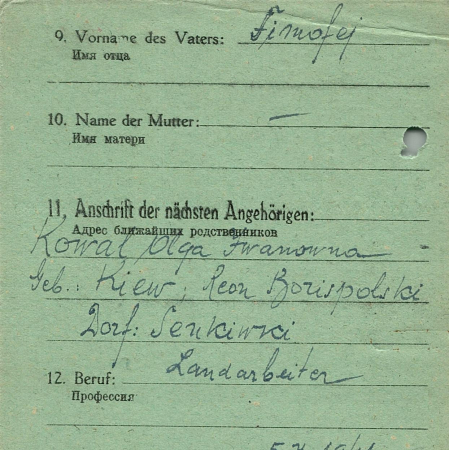 9. Vorname des Vaters: Timofej
Имя отца
10. Name der Mutter: —
Имя матери
11. Anschrift der nächsten Angehörigen:
Адрес ближайших родственников
Kowal Olga Iwanowna
Geb.: Kiew, Reon Borispolski
Dorf: Senkiwzi
Landarbeiter
12. Beruf:
Профессия